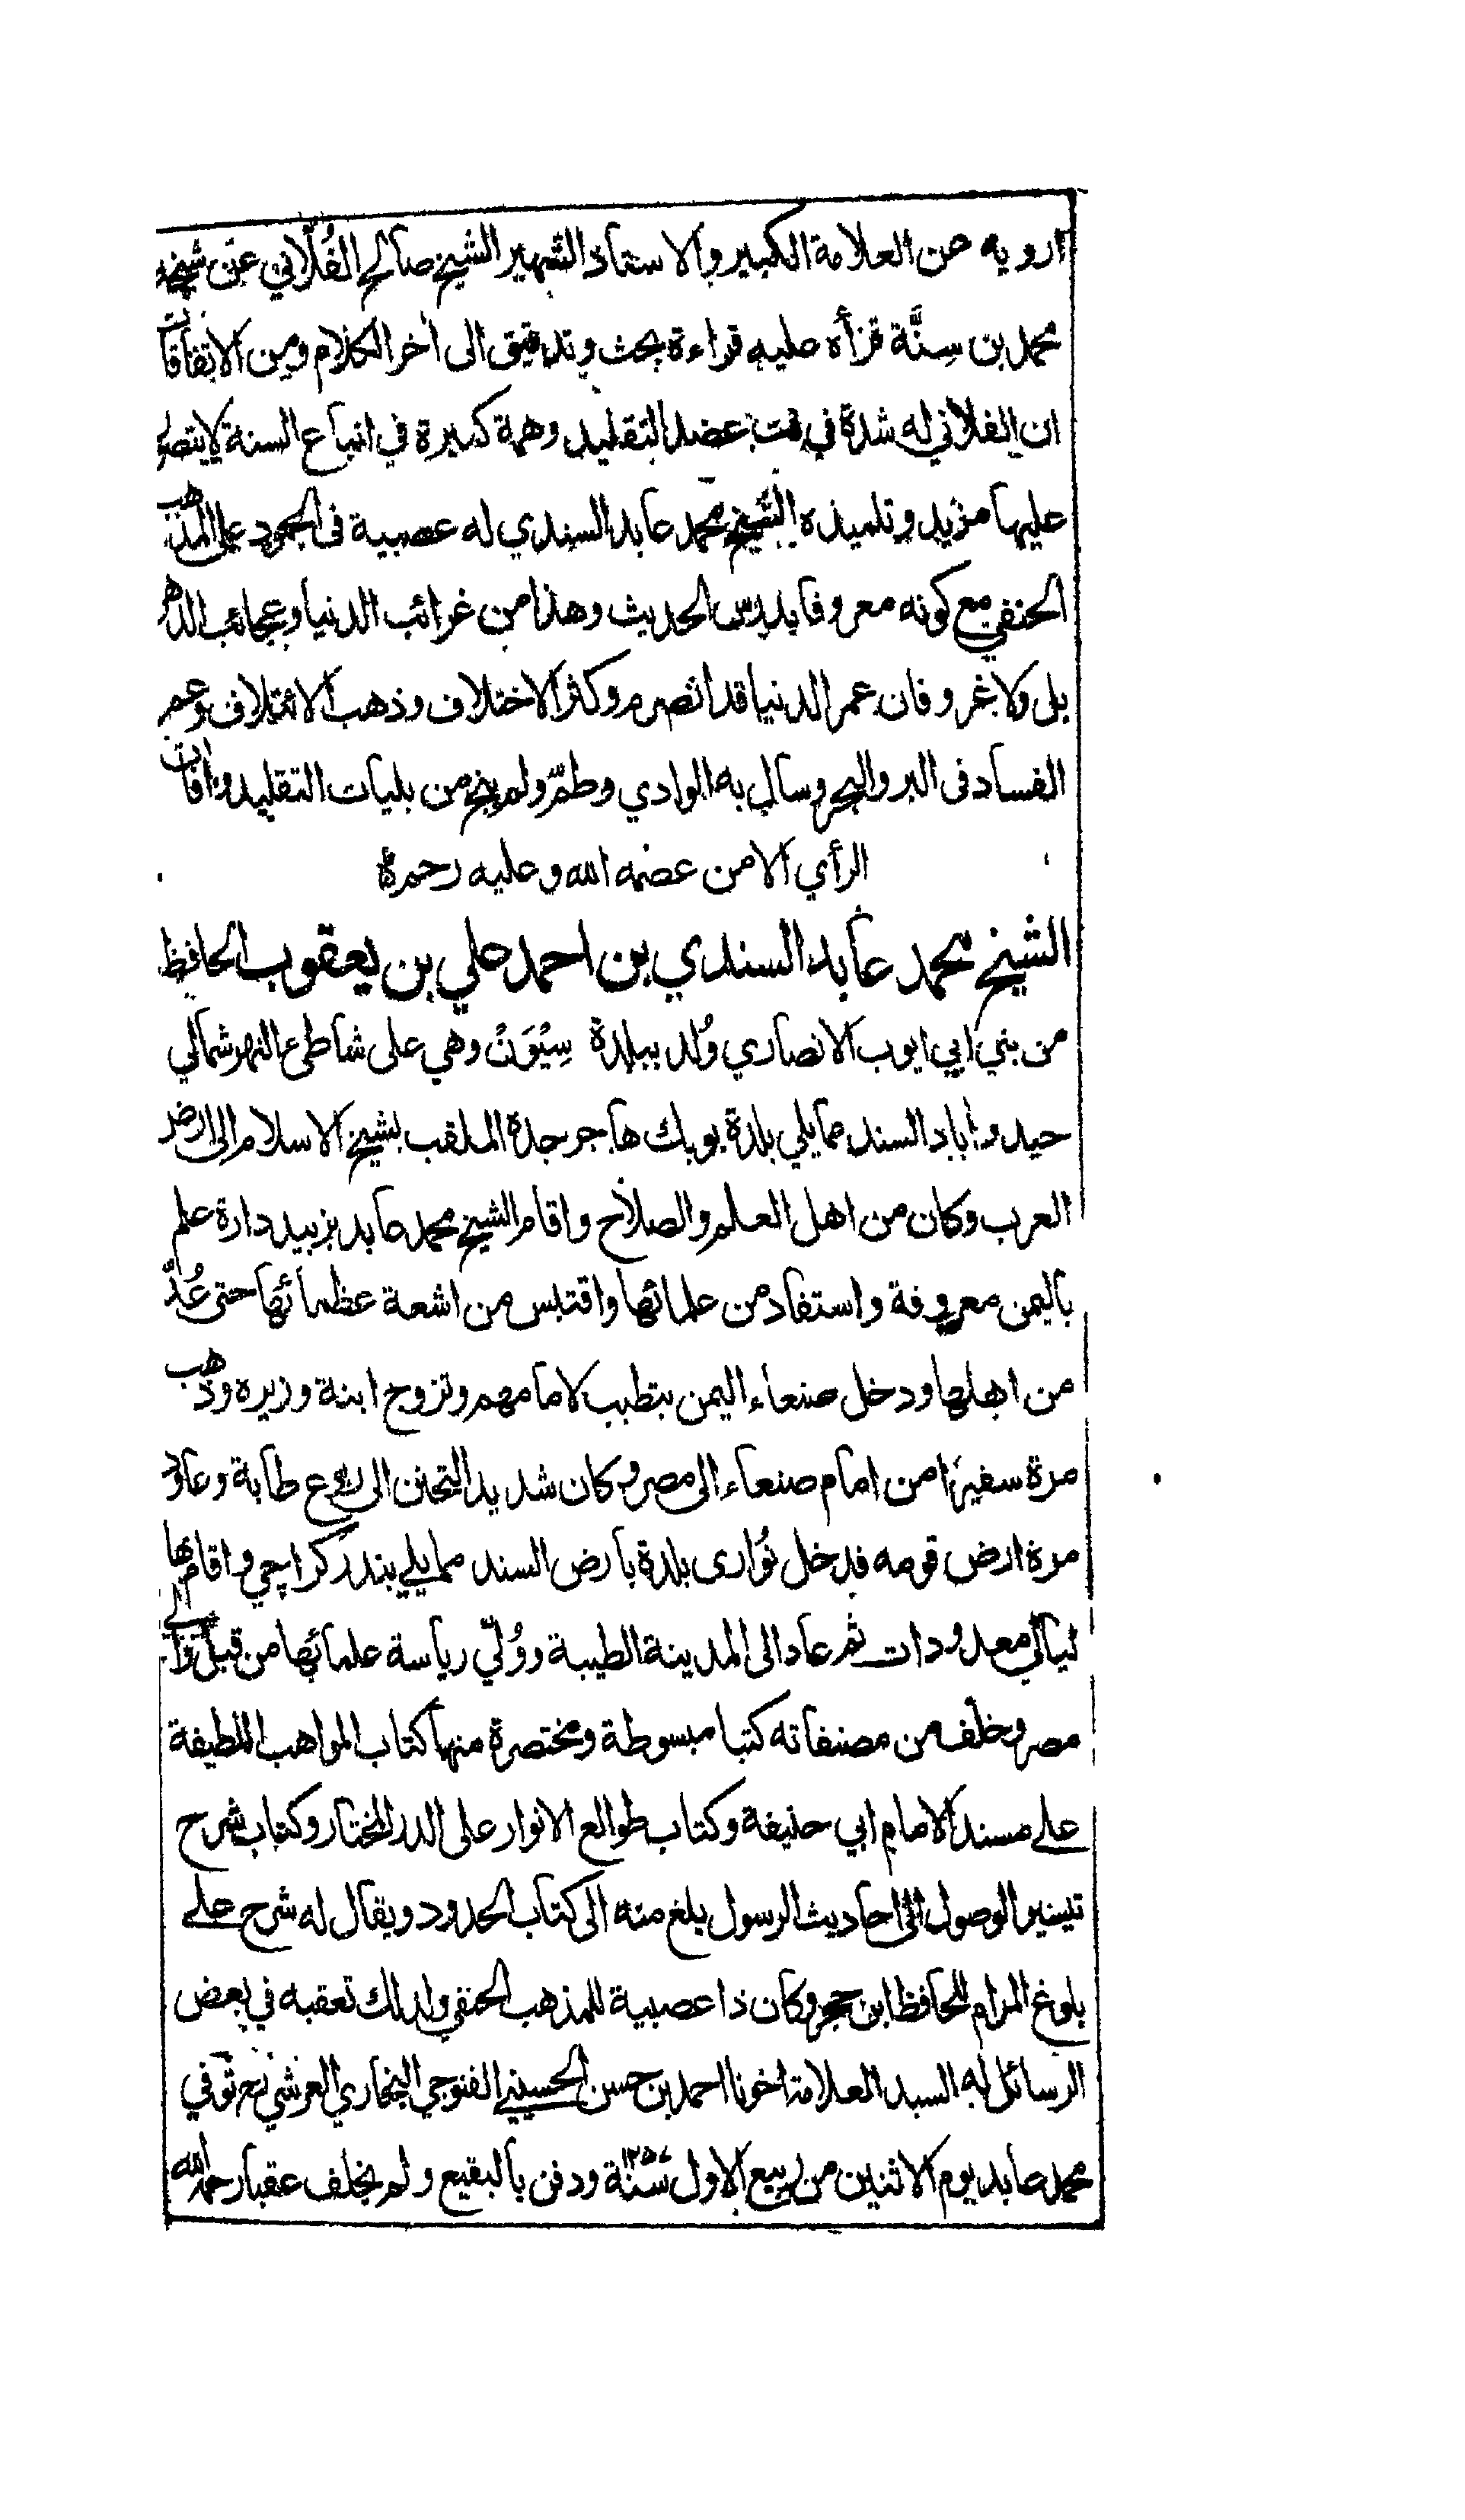 ارويه عن العلامة الكبير والاستاذ الشهير الشيخ صالح الفُلّاني عن شيخه
محمد بن سِنَّة قرأه عليه قراءة بحث وتدقيق الى اخر الكلام ومن الاتفاقات
ان الفلاني له شدة في فت عضد التقليد وهمة كبيرة في اتباع السنة لا يتصور
عليها مزيد وتلميذه الشيخ محمد عابد السندي له عصبية فى الجمود على المذهب
الحنفي مع كونه معروفا بدرس الحديث وهذا من غرائب الدنيا وعجائب الدهر
بل ولا غرو فان عمر الدنيا قد انصرم وكثر الاختلاف وذهب الائتلاف وعم
الفساد فى البر والبحر وسال به الوادي وطمّ ولم ينج من بليات التقليد وافات
الرأي الا من عصمه الله وعليه رحمة
الشيخ محمد عابد السندي بن احمد علي بن يعقوب الحافظ
من بني ابي ايوب الانصاري وُلد ببلدة سِيْوَنْ وهي على شاطئ النهر شمالي
حيدراباد السند مما يلي بلدة بوبك هاجر جده الملقب بشيخ الاسلام الى ارض
العرب وكان من اهل العلم والصلاح واقام الشيخ محمد عابد بزبيد دارة علم
باليمن معروفة واستفاد من علمائها واقتبس من اشعة عظمائها حتى عُدّ
من اهلها ودخل صنعاء اليمن بتطبب لامامهم وتزوج ابنة وزيره وذهب
مرة سفيرًا من امام صنعاء الى مصر وكان شديد التحنن الى ربوع طابة وعاود
مرة ارض قومه فدخل نُوارى بلدة بارض السند مما يلي بندر كراچي واقام بها
ليالي معدودات ثم عاد الى المدينة الطيبة ووُلّي رياسة علمائها من قبل والي
مصر وخلف من مصنفاته كتبا مبسوطة ومختصرة منها كتاب المواهب اللطيفة
على مسند الامام ابي حنيفة وكتاب طوالع الانوار على الدر المختار وكتاب شرح
تيسير الوصول الى احاديث الرسول بلغ منه الى كتاب الحدود ويقال له شرح على
بلوغ المرام للحافظ ابن حجر وكان ذا عصبية للمذهب الحنفي ولذلك تعقبه في بعض
الرسائل له السيد العلامة اخونا احمد بن حسن الحسيني القنوجي البخاري العرشي رح توفي
محمد عابد يوم الاثنين من ربيع الاول سنة ١٢٥٧ ودفن بالبقيع ولم يخلف عقبا رحمه الله